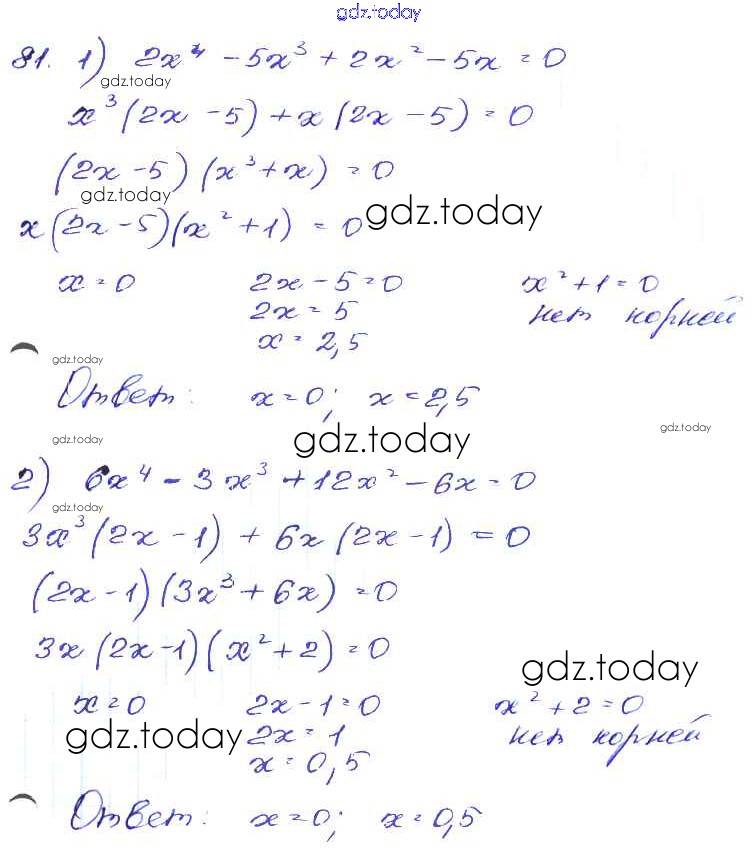 gdz.today
81. 1) 2x⁴ - 5x³ + 2x² - 5x = 0
gdz.today
x³(2x - 5) + x(2x - 5) = 0
(2x - 5)(x³ + x) = 0
gdz.today
x(2x - 5)(x² + 1) = 0 gdz.today
x = 0 2x - 5 = 0 x² + 1 = 0
2x = 5 нет корней
x = 2,5
gdz.today
Ответ: x = 0; x = 2,5
gdz.today gdz.today gdz.today
2) 6x⁴ - 3x³ + 12x² - 6x = 0
gdz.today
3x³(2x - 1) + 6x(2x - 1) = 0
(2x - 1)(3x³ + 6x) = 0
3x(2x - 1)(x² + 2) = 0
gdz.today
x = 0 2x - 1 = 0 x² + 2 = 0
gdz.today 2x = 1 нет корней
x = 0,5
Ответ: x = 0; x = 0,5